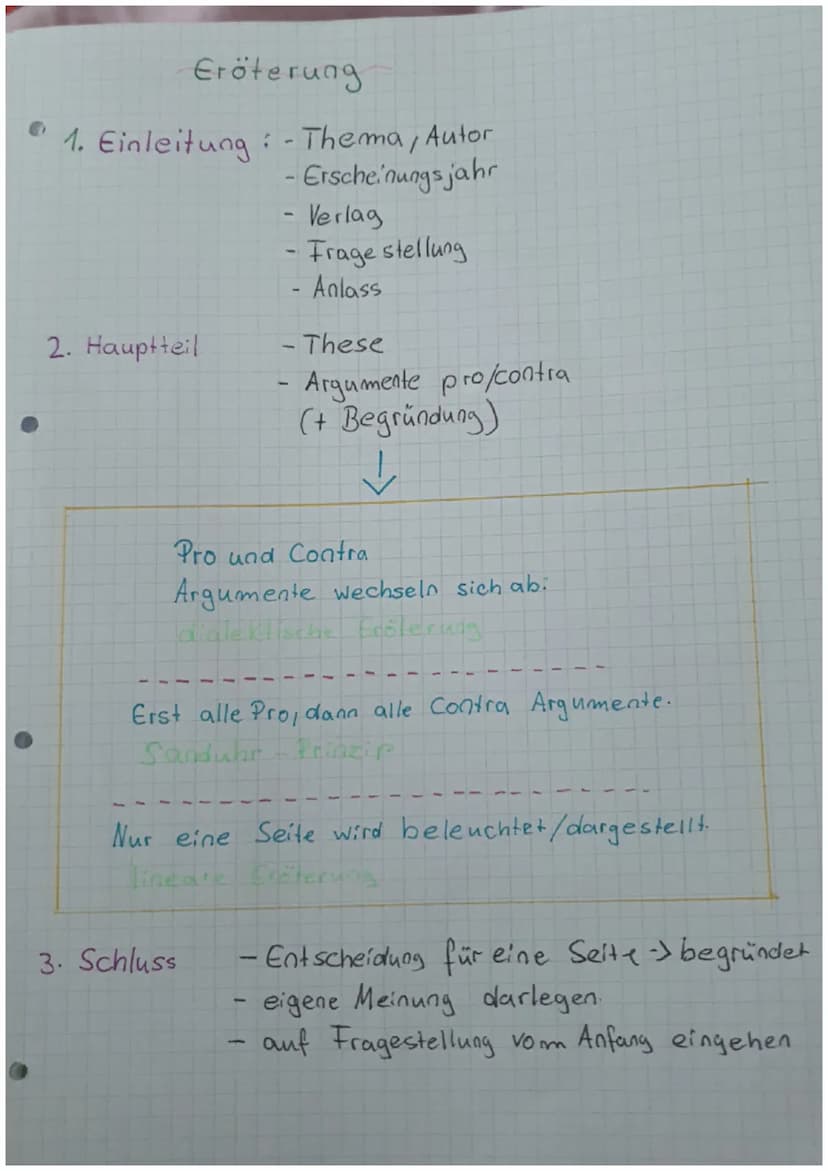 Eröterung
1. Einleitung : - Thema, Autor
- Erscheinungsjahr
- Verlag
- Fragestellung
- Anlass
2. Hauptteil - These
- Argumente pro/contra
(+ Begründung)
↓
Pro und Contra
Argumente wechseln sich ab:
dialektische Eröterung
Erst alle Pro, dann alle Contra Argumente.
Sanduhr - Prinzip
Nur eine Seite wird beleuchtet/dargestellt.
lineare Eröterung
3. Schluss - Entscheidung für eine Seite -> begründet
- eigene Meinung darlegen.
- auf Fragestellung vom Anfang eingehen